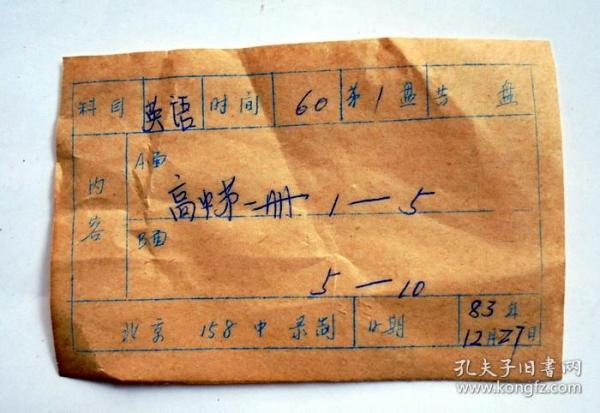 科目 英语 时间 60 第 1 盘 共 盘
内容
A面
高中第一册 1—5
B面
5—10
北京 158 中 录制 日期 83年
12月27日
孔夫子旧书网
www.kongfz.com